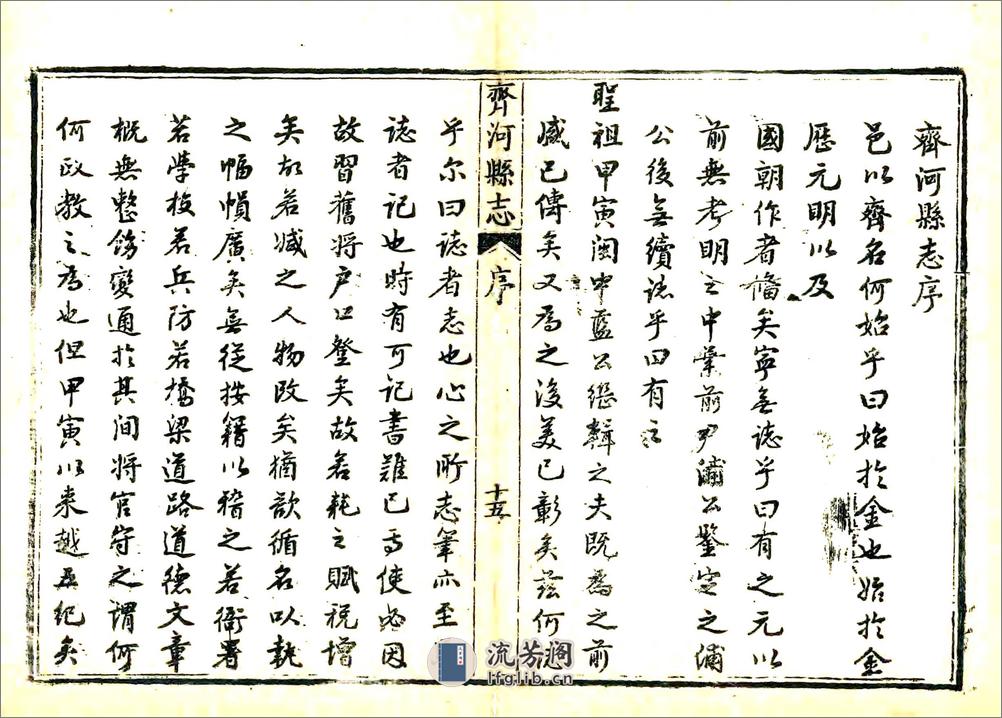 齊河縣志序
邑以齊名何始乎曰始於金也始於金
歷元明以及
國朝作者備矣寧無誌乎曰有之元以
前無考明之中葉前尹浦公鑒定之浦
公後無續誌乎曰有之
聖祖甲寅閩中藍公繼輯之夫既為之前
盛已傳矣又為之後美已彰矣茲何志
齊河縣志
序
十五
乎尔曰誌者志也心之所志筆亦至
誌者記也時有可記書難已焉使必因
故習舊將戶口登矣故若耗之賦稅增
矣故若減之人物改矣猶歆循名以執
之幅幀廣矣無從按籍以稽之若衙署
若學校若兵防若橋梁道路道德文章
概無整飭變通於其間將官守之謂何
何政教之為也但甲寅以來越五紀矣
流芳阁
lfglib.cn